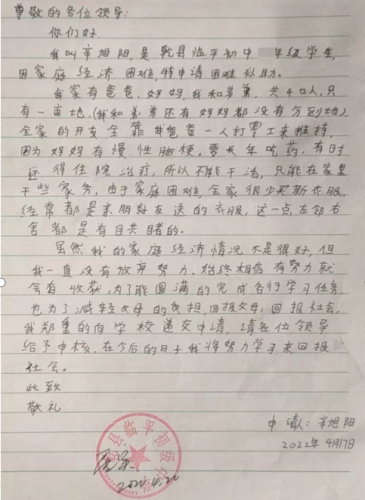 尊敬的各位领导:
你们好.
我叫辛旭阳,是乾县临平初中 年级学生,
因家庭经济困难,特申请困难补助.
我家有爸爸,妈妈,我和弟弟,共4口人,只
有一亩地,(我和弟弟还有妈妈都没有分到地)
全家的开支全靠爸爸一人打零工来维持,
因为妈妈有慢性脑梗,要长年吃药,有时
还得住院治疗,所以不能干活,只能在家里
干些家务,由于家庭困难,全家很少买新衣服,
经常都是亲朋好友送的衣服,这一点左邻右
舍都是有目共睹的.
虽然我的家庭经济情况不是很好,但
我一直没有放弃努力,始终相信有努力就
会有收获,为了能圆满的完成各行学习任务,
也为了减轻父母的负担,回报父母,回报社会,
我郑重的向学校递交申请,请各位领导
给予审核,在今后的日子我将努力学习来回报
社会.
此致
敬礼
申请人:辛旭阳
2022年4月17日
县临平初级
2022.4.22